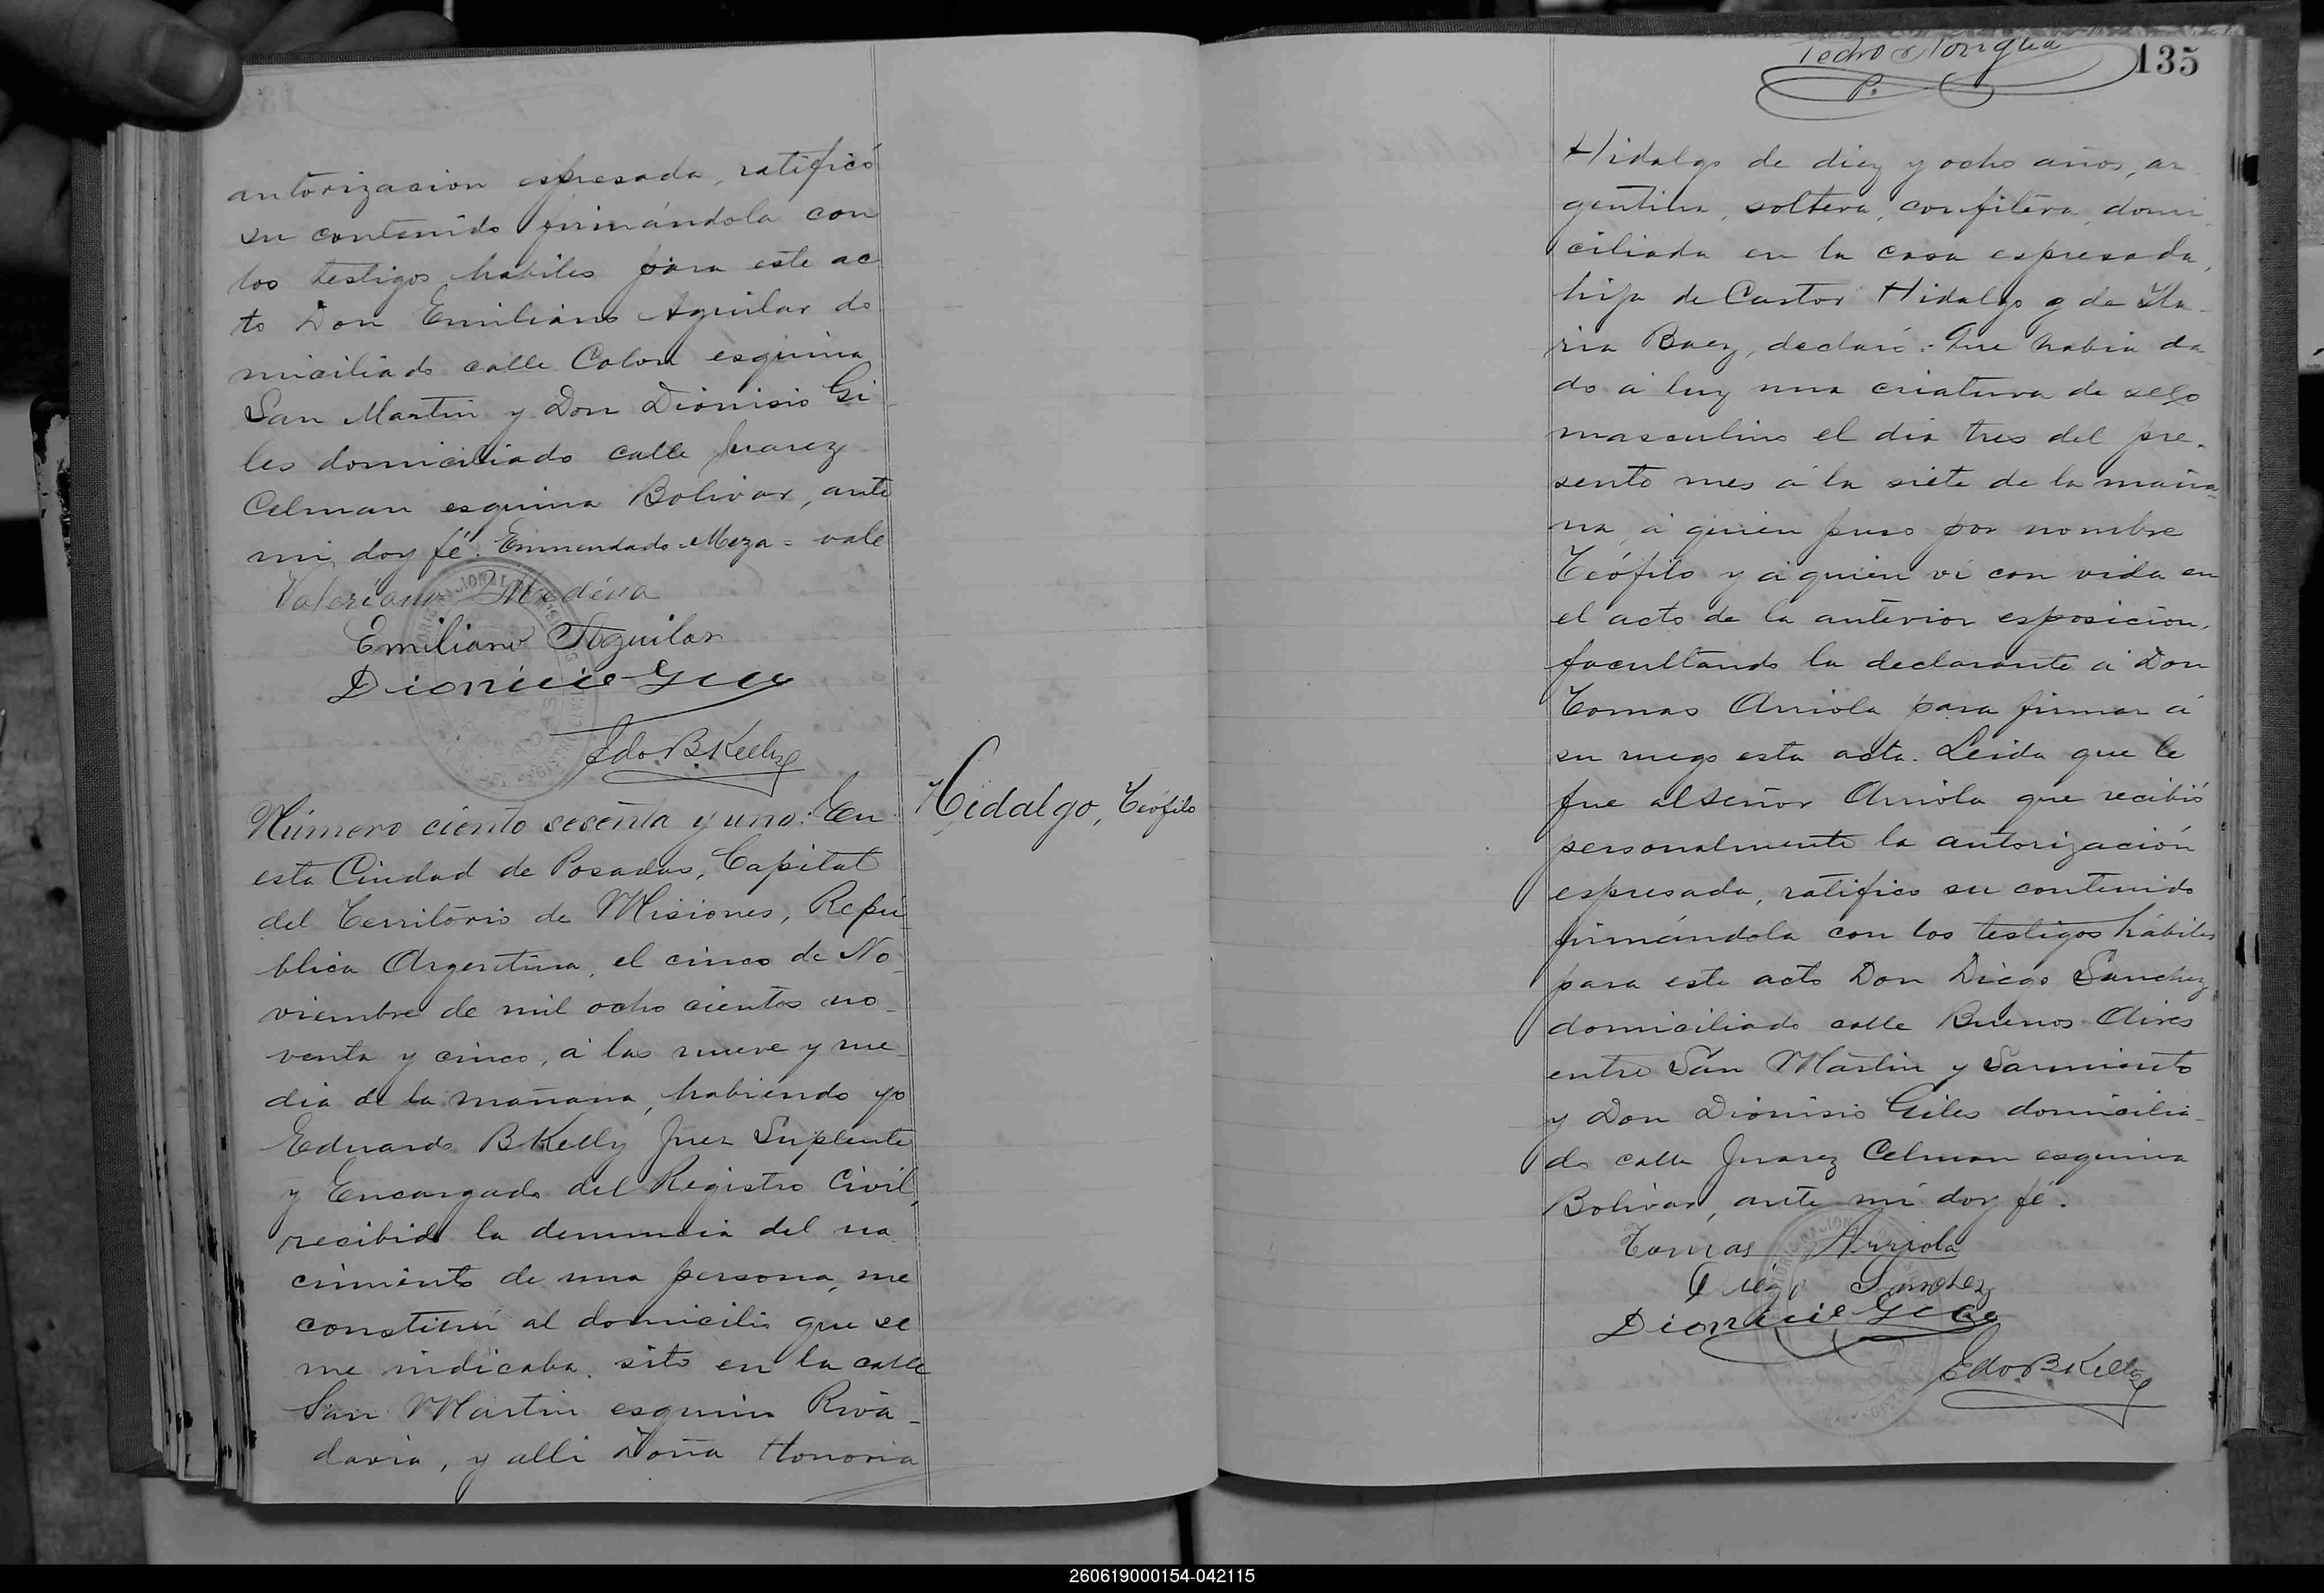 autorizacion espresada, ratificó
su contenido firmándola con
los testigos habiles para este ac
to Don Emiliano Aguilar do
miciliado calle Colon esquina
San Martin y Don Dionisio Gi
les domiciliado calle Juarez
Celman esquina Bolivar, ante
mi, doy fé. Enmendado=Meza=vale
Valeriano Medina
Emiliano Aguilar
Dionicio
Edo. B. Kelly
Número ciento sesenta y uno: En
esta Ciudad de Posadas, Capital
del Territorio de Misiones, Repú
blica Argentina, el cinco de No-
viembre de mil ocho cientos no-
venta y cinco, á las nueve y me-
dia de la mañana, habiendo yo
Eduardo B Kelly Juez Suplente
y Encargado del Registro Civil,
recibido la denuncia del na
cimiento de una persona, me
constituí al domicilio que se
me indicaba, sito en la calle
San Martin esquina Riva-
davia, y alli Doña Honoria
Hidalgo, Teófilo
Pedro
P.
135
Hidalgo de diez y ocho años, ar
gentina, soltera, confitera, domi
ciliada en la casa espresada,
hija de Castor Hidalgo y de
Baez, declaró: Que habia da
do á luz una criatura de seso
masculino el dia tres del pre-
sente mes á la siete de la maña
na, á quien puso por nombre
Teófilo y á quien ví con vida en
el acto de la anterior esposicion,
facultando la declarante á Don
Tomas Arriola para firmar á
su ruego esta acta. Leida que le
fue al señor Arriola que recibió
personalmente la autorización
espresada, ratifico su contenido
firmándola con los testigos hábiles
para este acto Don Diego Sanchez
domiciliado calle Buenos Aires
entre San Martin y Sarmiento
y Don Dionisio Giles domicilia-
do calle Juarez Celman esquina
Bolivar, ante mí doy fé.
Tomas Arriola
Diego Sanchez
Dionicio
Edo. B. Kelly
260619000154-042115